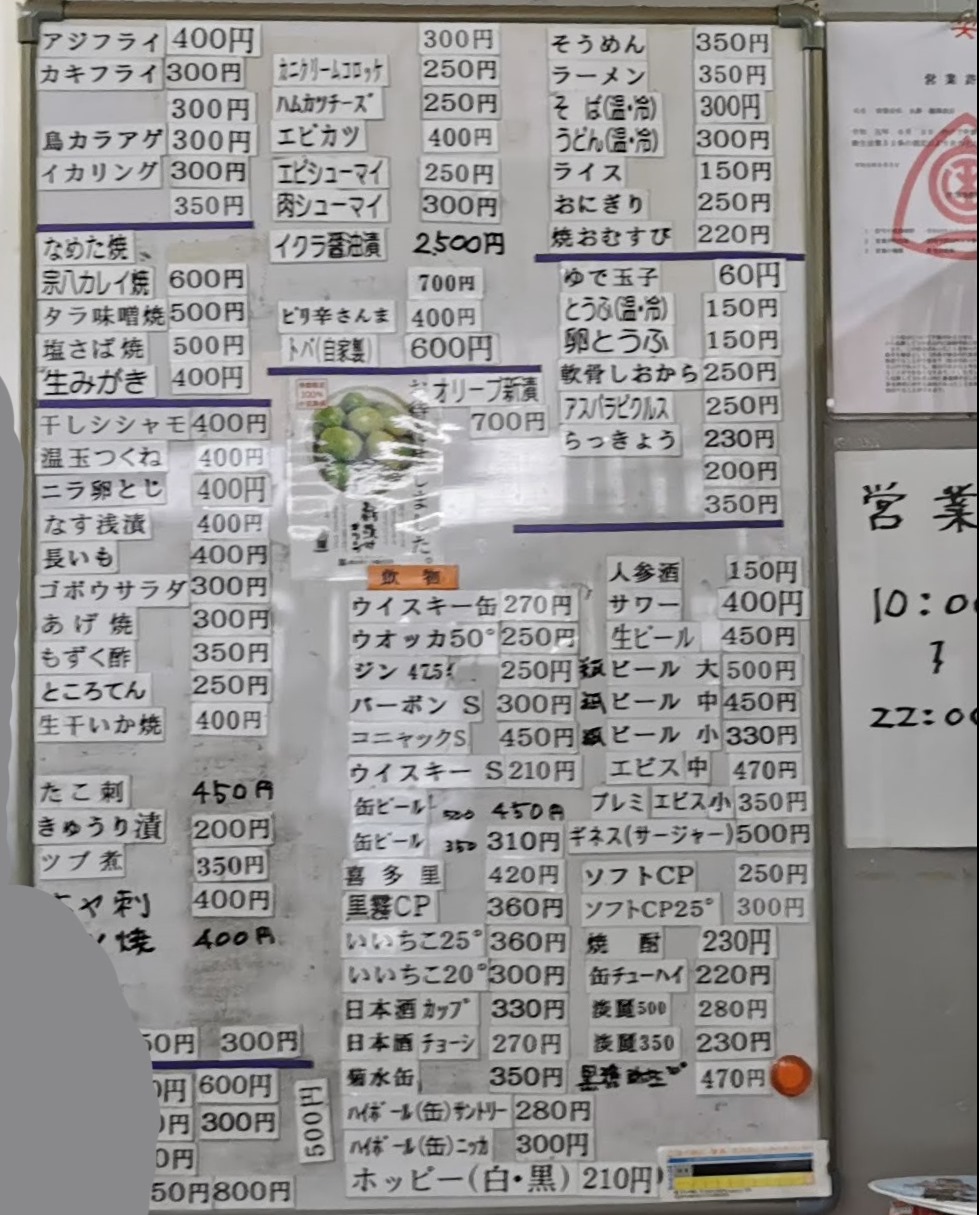 アジフライ 400円
カキフライ 300円
300円
鳥カラアゲ 300円
イカリング 300円
350円
なめた焼
宗八カレイ焼 600円
タラ味噌焼 500円
塩さば焼 500円
生みがき 400円
干しシシャモ 400円
温玉つくね 400円
ニラ卵とじ 400円
なす浅漬 400円
長いも 400円
ゴボウサラダ 300円
あげ焼 300円
もずく酢 350円
ところてん 250円
生干いか焼 400円
たこ刺 450円
きゅうり漬 200円
ツブ煮 350円
刺 400円
焼 400円
50円 300円
円 600円
円 300円
0円
50円 800円
500円
300円
カニクリームコロッケ 250円
ハムカツチーズ 250円
エビカツ 400円
エビシューマイ 250円
肉シューマイ 300円
イクラ醤油漬 2,500円
700円
ピリ辛さんま 400円
トバ(自家製) 600円
オリーブ新漬
700円
100%
そうめん 350円
ラーメン 350円
そば(温・冷) 300円
うどん(温・冷) 300円
ライス 150円
おにぎり 250円
焼おむすび 220円
ゆで玉子 60円
とうふ(温・冷) 150円
卵とうふ 150円
軟骨しおから 250円
アスパラピクルス 250円
らっきょう 230円
200円
350円
飲物
ウイスキー缶 270円
ウオッカ50° 250円
ジン 47.5° 250円
バーボン S 300円
コニャックS 450円
ウイスキー S 210円
缶ビール 500 450円
缶ビール 350 310円
喜多里 420円
黒霧CP 360円
いいちこ25° 360円
いいちこ20° 300円
日本酒カップ 330円
日本酒チョーシ 270円
菊水缶 350円
ハイボール(缶)サントリー 280円
ハイボール(缶)ニッカ 300円
ホッピー(白・黒) 210円
人参酒 150円
サワー 400円
生ビール 450円
瓶ビール 大 500円
瓶ビール 中 450円
瓶ビール 小 330円
エビス中 470円
プレミエビス小 350円
ギネス(サージャー) 500円
ソフトCP 250円
ソフトCP25° 300円
焼酎 230円
缶チューハイ 220円
淡麗500 280円
淡麗350 230円
470円
営業
10:00
22:00